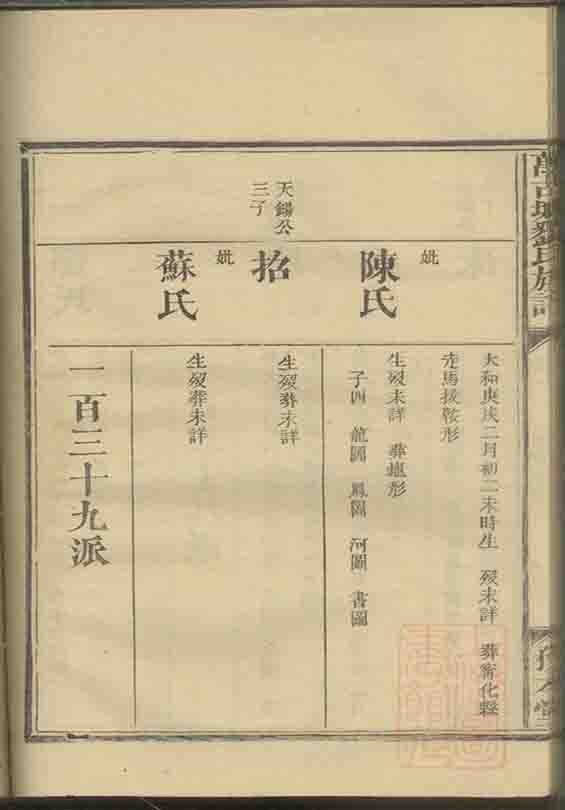 劉氏族
大和庚戌二月初二未時生 歿未詳 葬甯化縣
走馬拔鞍形
妣
陳氏
生歿未詳 葬 形
子四 龍圖 鳳圖 河圖 書圖
天錫公
三子
招
生歿葬未詳
妣
蘇氏
生歿葬未詳
一百三十九派